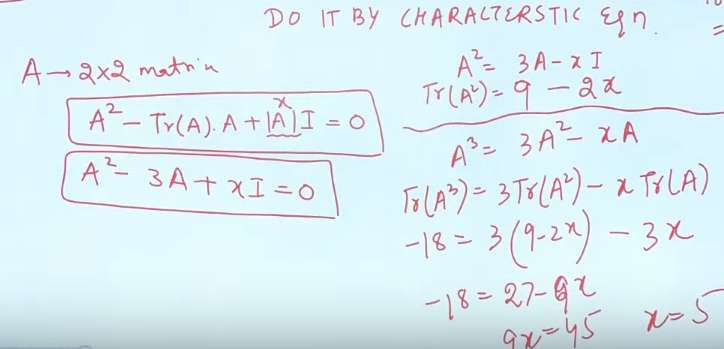 DO IT BY CHARACTERSTIC Eqn.
A → 2x2 matrix
A² - Tr(A). A + |A| I = 0
x
A² - 3A + xI = 0
A² = 3A - xI
Tr(A²) = 9 - 2x
A³ = 3A² - xA
Tr(A³) = 3Tr(A²) - x Tr(A)
-18 = 3(9-2x) - 3x
-18 = 27 - 9x
9x = 45 x = 5